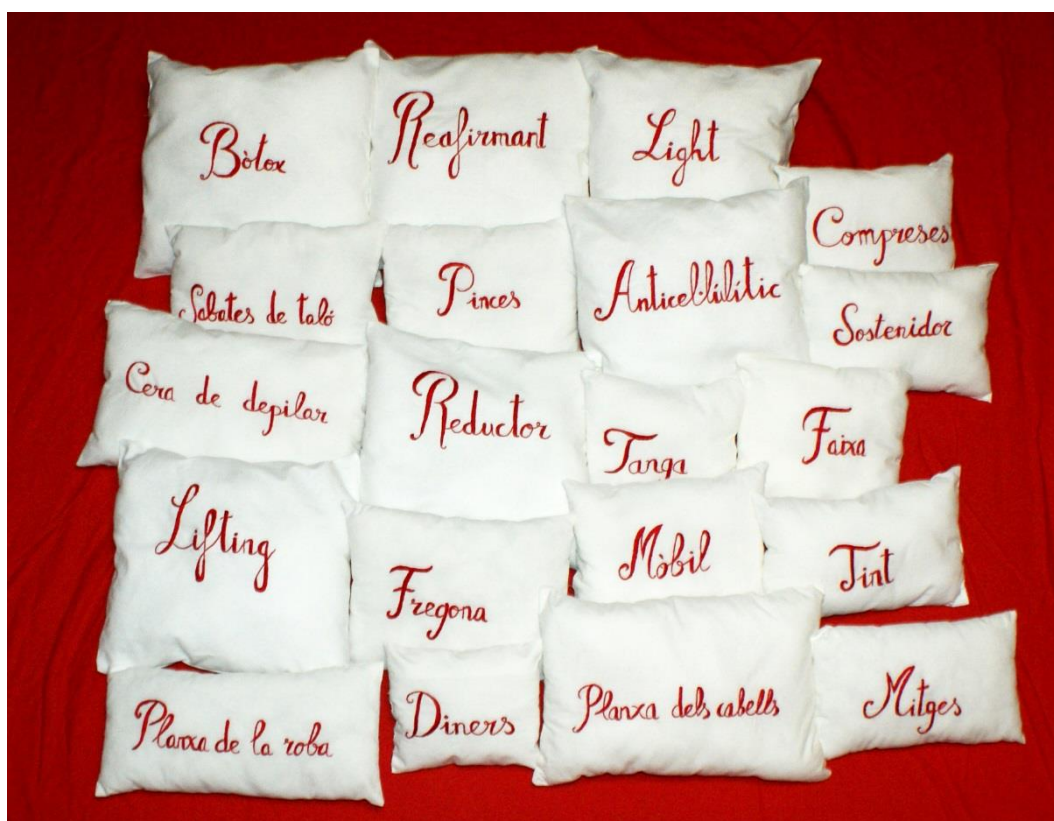 Bòtox
Reafirmant
Light
Compreses
Sabates de taló
Pinces
Anticel·lilític
Sostenidor
Cera de depilar
Reductor
Tanga
Faixa
Lifting
Fregona
Mòbil
Tint
Planxa de la roba
Diners
Planxa dels cabells
Mitges